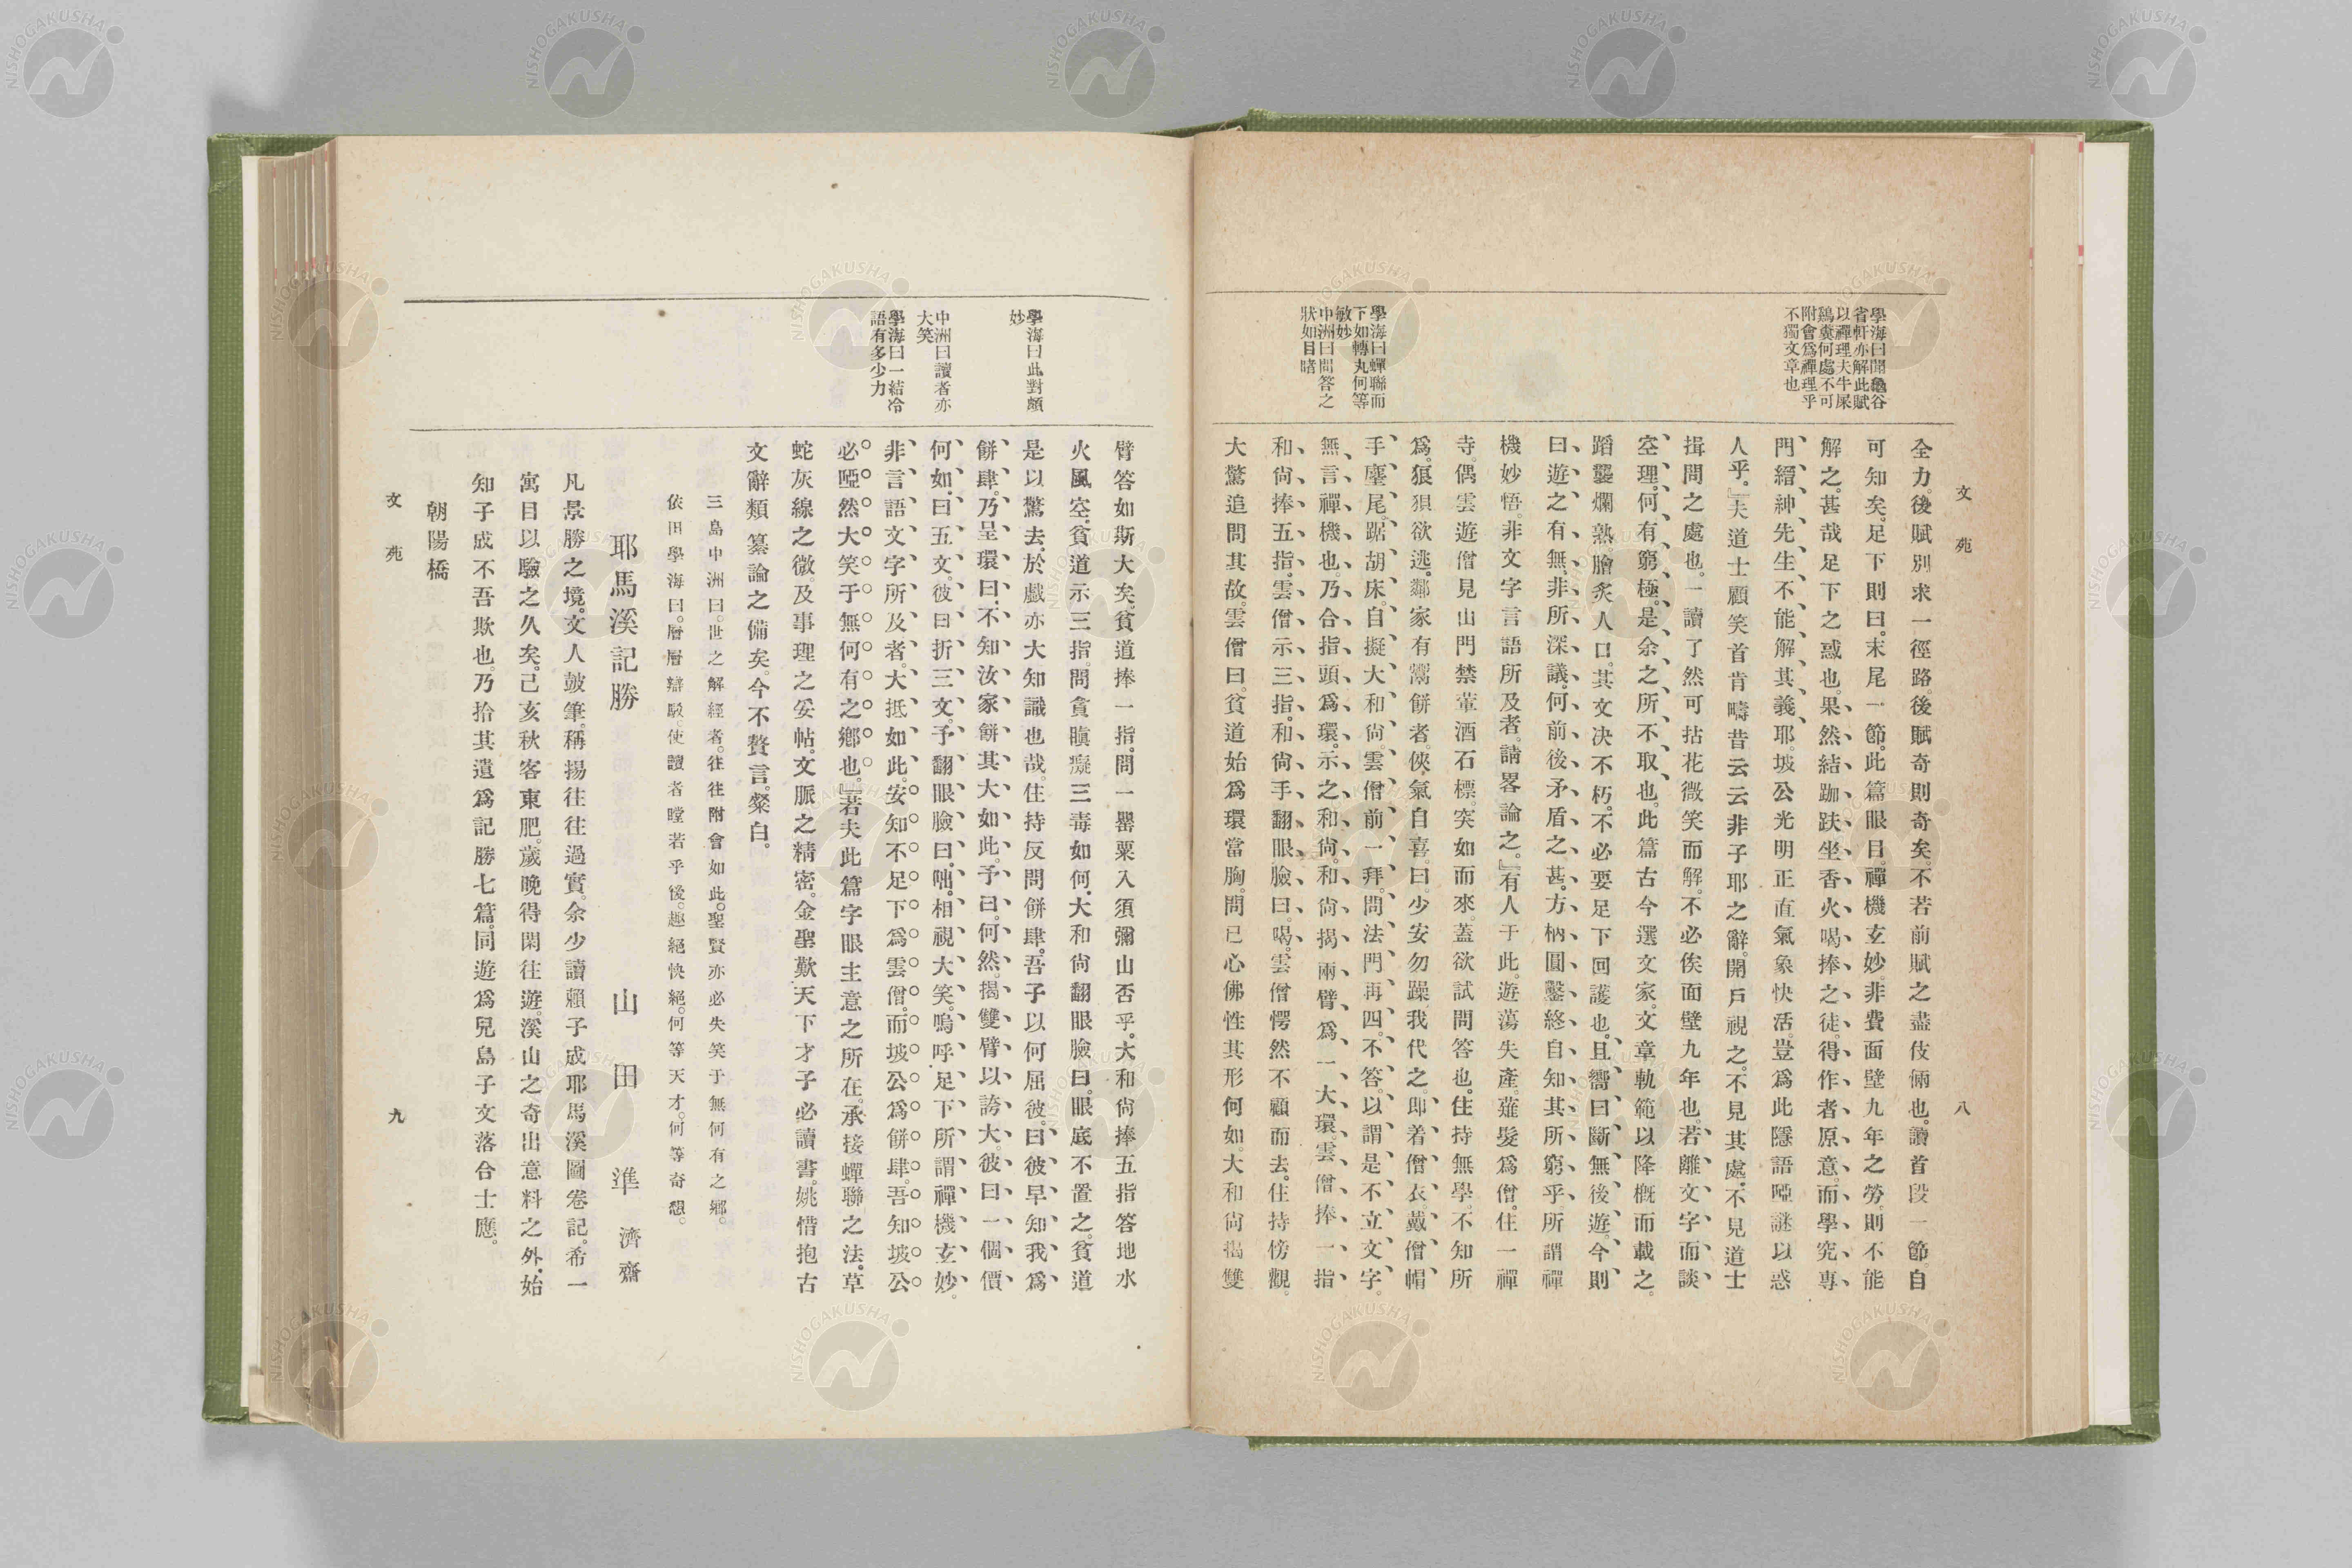 文苑
八
學海曰聞龜谷
省軒亦解此賦
以禪理夫牛屎
鷄糞何處不可
附會爲禪理乎
不獨文章也
學海曰蟬聯而
下如轉丸何等
敏妙
中洲曰問答之
狀如目睹
全力。後賦別求一徑路。後賦奇則奇矣。不若前賦之盡伎倆也。讀首段一節。自
可知矣。足下則曰。末尾一節。此篇眼目。禪機玄妙。非費面壁九年之勞。則不能
解之。甚哉足下之惑也。果然結跏趺坐。香火喝捧之徒。得作者原意。而學究專
門、縉紳先生不能解其義耶。坡公光明正直。氣象快活。豈爲此隱語啞謎以惑
人乎。』夫道士顧笑首肯疇昔云云。非子耶之辭。開戶視之。不見其處。不見道士
揖問之處也。一讀了然。可拈花微笑而解。不必俟面壁九年也。若離文字而談
空理。何有窮極。是余之所不取也。此篇古今選文家。文章軌範以降槪而載之。
蹈襲爛熟。膾炙人口。其文決不朽。不必要足下回護也。且嚮曰斷無後遊。今則
曰遊之有無。非所深議。何前後矛盾之甚。方枘圓鑿。終自知其所窮乎。所謂禪
機妙悟。非文字言語所及者。請畧論之。』有人于此。遊蕩失產。薙髮爲僧。住一禪
寺。偶雲遊僧見山門禁葷酒石標。突如而來。蓋欲試問答也。住持無學。不知所
爲。狼狽欲逃。鄰家有鬻餠者。俠氣自喜。曰。少安勿躁。我代之。卽着僧衣。戴僧帽
手麈尾。踞胡床。自擬大和尙。雲僧前一拜。問法門。再四。不答。以謂是不立文字。
無言禪機也。乃合指頭爲環。示之和尙。和尙揭兩臂爲一大環。雲僧捧一指
和尙捧五指。雲僧示三指。和尙手翻眼臉。曰。喝。雲僧愕然不顧而去。住持傍觀。
大驚追問其故。雲僧曰。貧道始爲環當胸。問已心佛性其形何如。大和尙揭雙
學海曰此對頗
妙
中洲曰讀者亦
大笑
學海曰一結冷
語有多少力
臂答如斯大矣。貧道捧一指。問一罌粟入須彌山否乎。大和尙捧五指答地水
火風空。貧道示三指。問貪瞋癡三毒如何。大和尙翻眼臉曰。眼底不置之。貧道
是以驚去。於戲亦大知識也哉。住持反問餠肆。吾子以何屈彼。曰彼早知我爲
餠肆。乃呈環曰。不知汝家餠其大如此。予曰。何然。揭雙臂以誇大。彼曰一個價
何如。曰五文。彼曰折三文。予翻眼臉曰。咄。相視大笑。嗚呼足下所謂禪機玄妙。
非言語文字所及者。大抵如此。安知不足下爲雲僧。而坡公爲餠肆。吾知坡公
必啞然大笑于無何有之鄉也。』若夫此篇字眼主意之所在。承接蟬聯之法。草
蛇灰線之微。及事理之妥帖。文脈之精密。金聖歎天下才子必讀書。姚惜抱古
文辭類纂論之備矣。今不贅言。粲白。
三島中洲曰。世之解經者。往往附會如此。聖賢亦必失笑于無何有之鄉。
依田學海曰。層層辯駁。使讀者瞠若乎後。趣絕快絕。何等天才。何等奇想。
耶馬溪記勝　山田準 濟齋
凡景勝之境。文人皷筆。稱揚往往過實。余少讀賴子成耶馬溪圖卷記。希一
寓目以驗之久矣。己亥秋客東肥。歲晚得閑往遊。溪山之奇出意料之外。始
知子成不吾欺也。乃拾其遺爲記勝七篇。同遊爲兒島子文落合士應。
朝陽橋
文苑
九